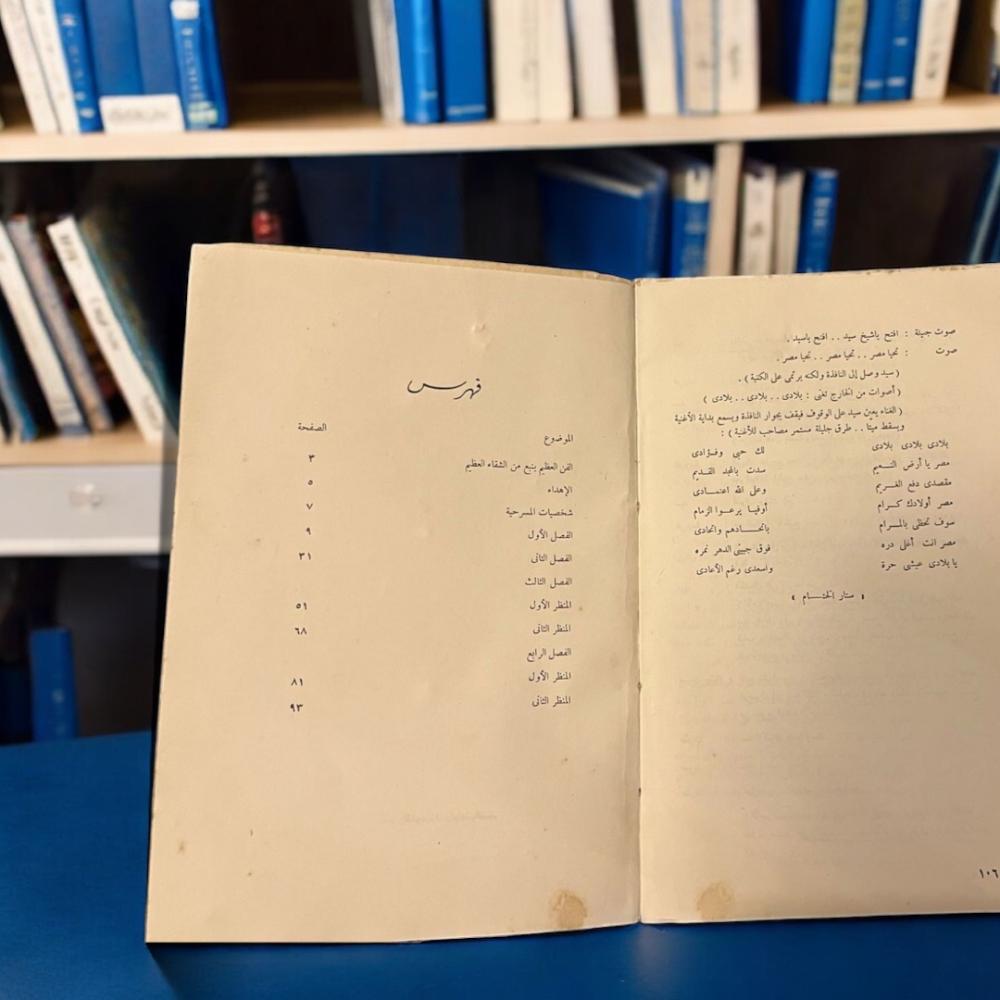 صوت جليلة : افتح ياشيخ سيد . . افتح ياسيد .
صوت : تحيا مصر . . تحيا مصر . . تحيا مصر .
( سيد وصل إلى النافذة ولكنه يرتمى على الكنبة ) .
( أصوات من الخارج تغنى : بلادى . . بلادى . . بلادى )
( الغناء يعين سيد على الوقوف فيقف بجوار النافذة ويسمع بداية الأغنية
ويسقط ميتاً . . طرق جليلة مستمر مصاحب للأغنية ) :
بلادى بلادى بلادى لك حبى وفؤادى
مصر يا أرض النعيم سدت بالمجد القديم
مقصدى دفع الغريم وعلى الله اعتمادى
مصر أولادك كرام أوفيا يرعوا الزمام
سوف تحظى بالمرام باتحادهم واتحادى
مصر انت أغلى دره فوق جبين الدهر غره
يا بلادى عيشى حرة واسعدى رغم الأعادى
« ستار الختام »
١٠٦
فهرس
الموضوع الصفحة
الفن العظيم ينبع من الشقاء العظيم ٣
الإهداء ٥
شخصيات المسرحية ٧
الفصل الأول ٩
الفصل الثانى ٣١
الفصل الثالث
المنظر الأول ٥١
المنظر الثانى ٦٨
الفصل الرابع
المنظر الأول ٨١
المنظر الثانى ٩٣